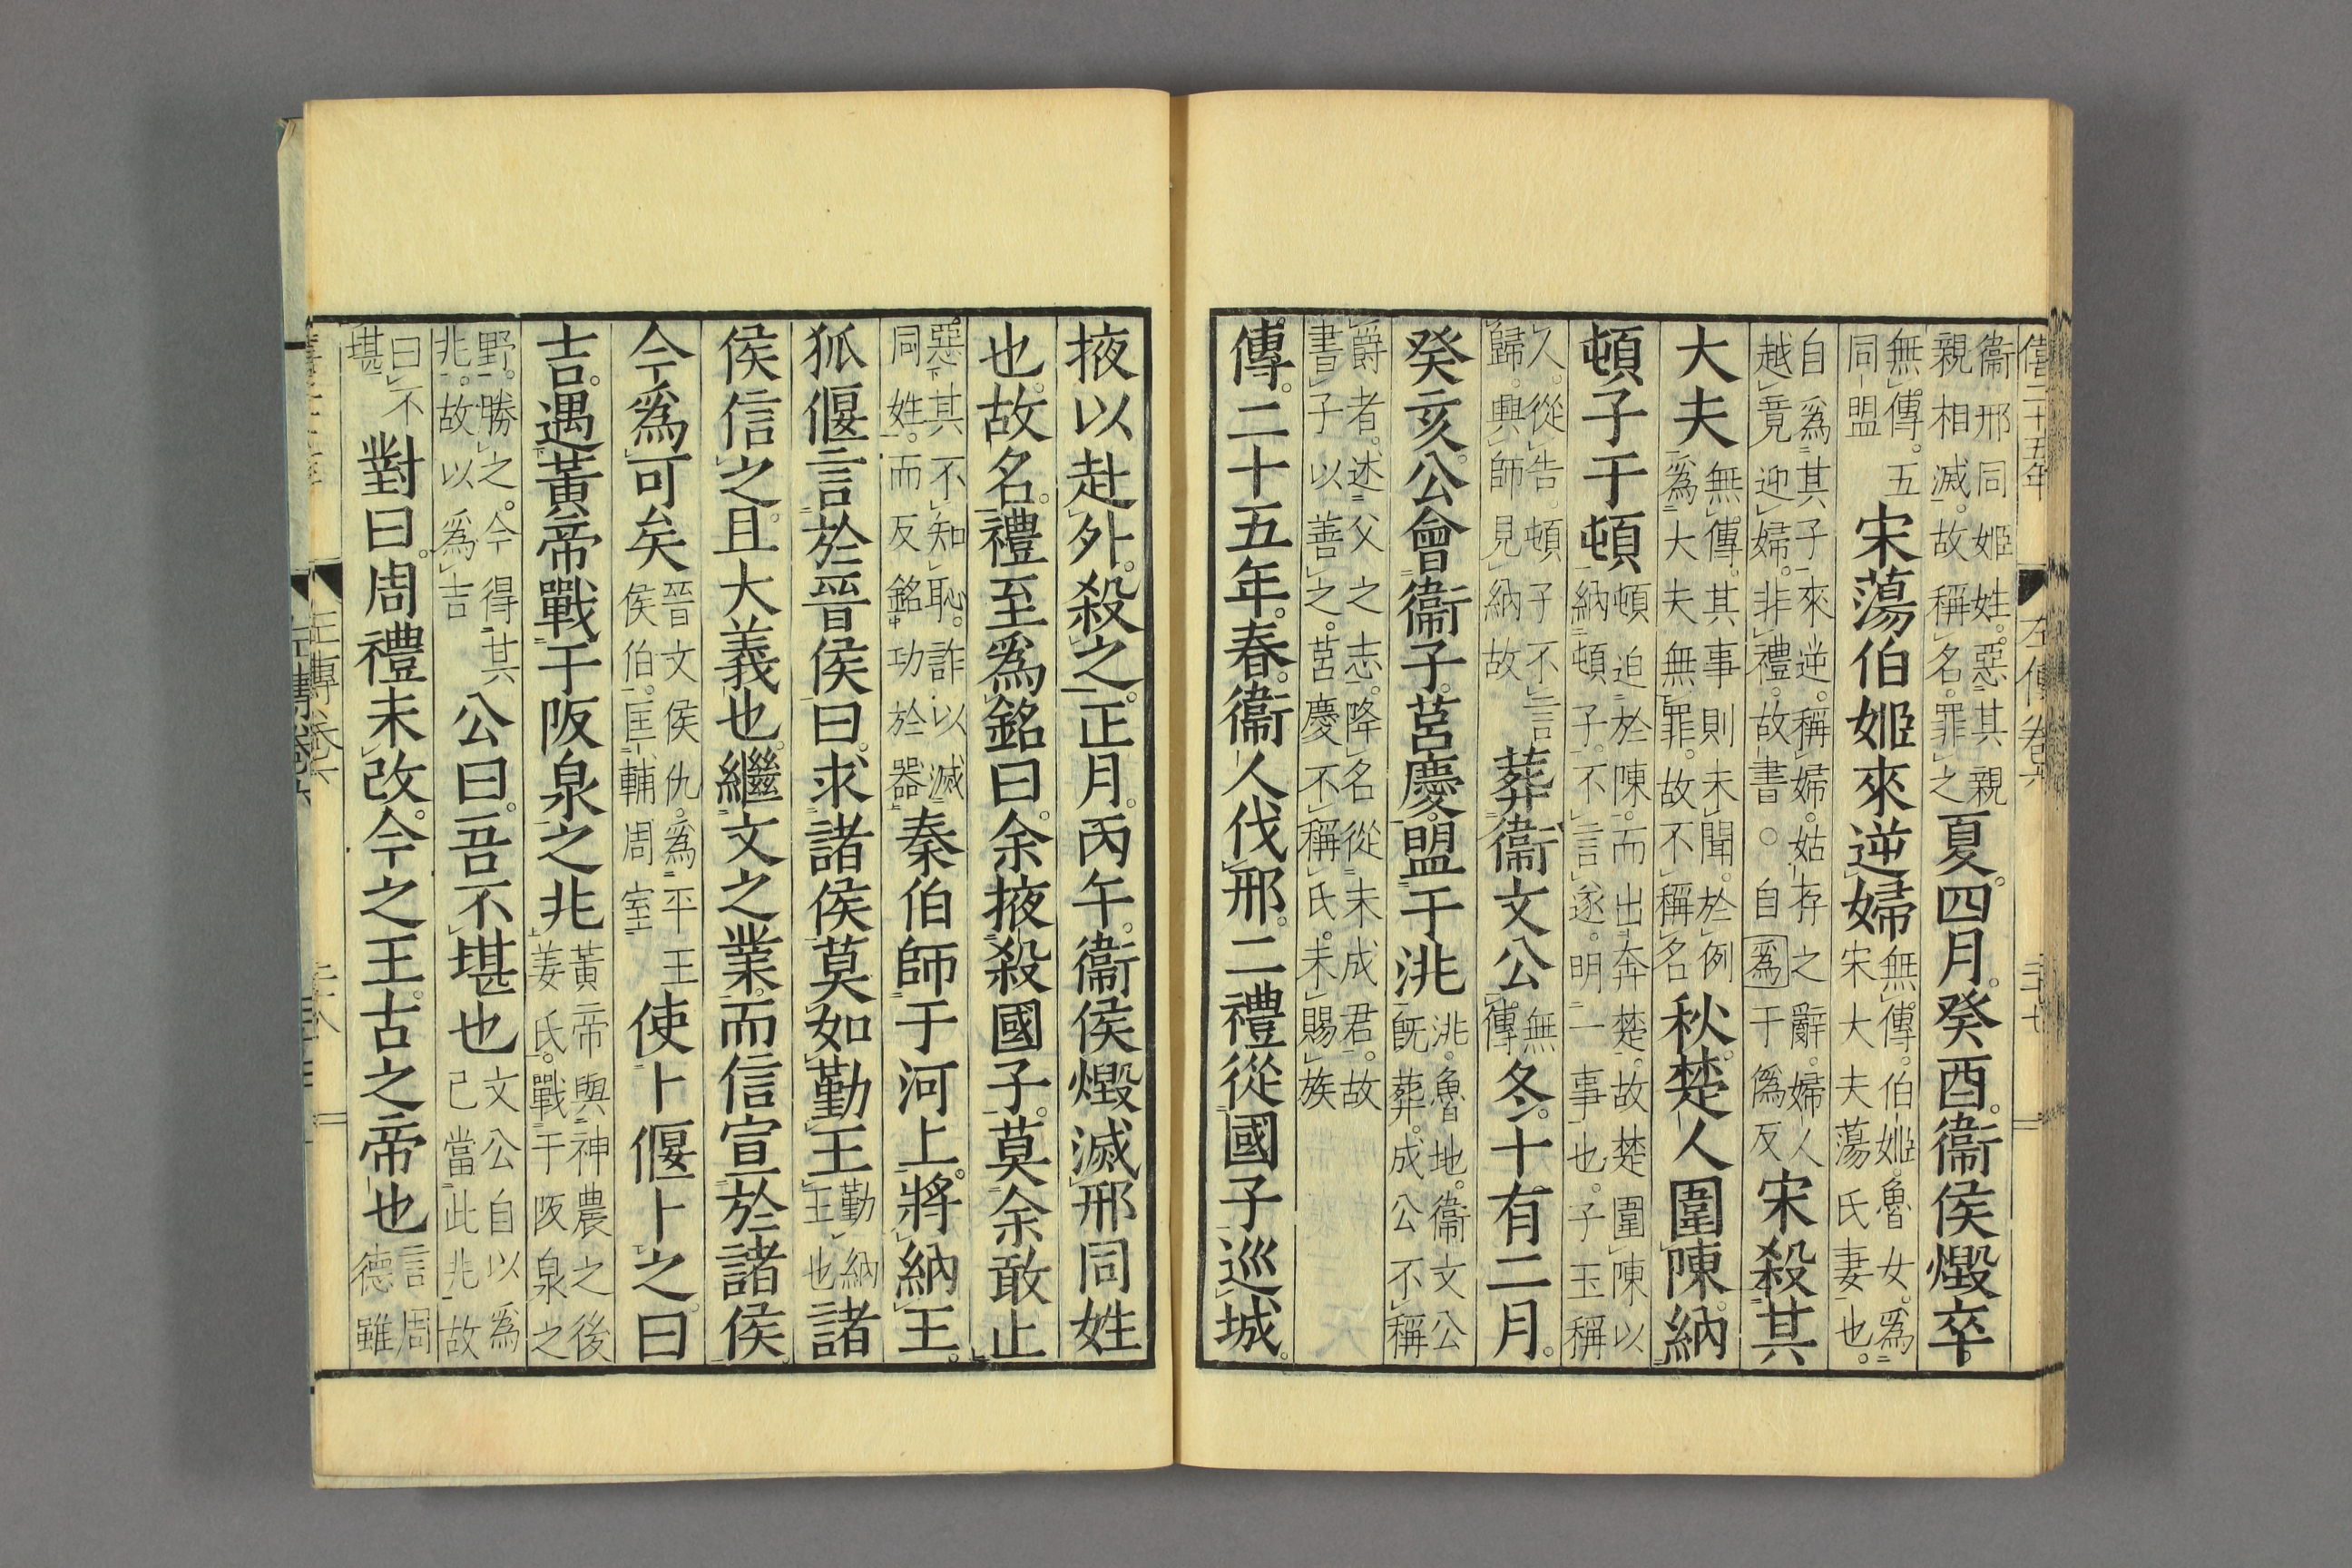 僖二十五年 左傳卷六
衞邢同姬姓。惡其親親相滅。故稱名。罪之夏。四月。癸酉。衞侯燬卒。
無傳。五同盟宋蕩伯姬來逆婦無傳。伯姬。魯女。爲宋大夫蕩氏妻也。
自爲其子來逆。稱婦。姑存之辭。婦人越竟迎婦。非禮。故書○自爲于僞反宋殺其
大夫無傳。其事則未聞。於例爲大夫無罪。故不稱名秋。楚人圍陳。納
頓子于頓頓迫於陳。而出奔楚。故楚圍陳以納頓子。不言遂。明一事也。子玉稱
人。從告。頓子不言歸。興師見納故葬衞文公無傳冬。十有二月。
癸亥。公會衞子。莒慶。盟于洮洮。魯地。衞文公既葬。成公不稱
爵者。述父之志。降名從未成君。故書子以善之。莒慶不稱氏。未賜族
傳。二十五年。春。衞人伐邢。二禮從國子巡城。
掖以赴外。殺之。正月。丙午。衞侯燬滅邢同姓
也。故名。禮至爲銘曰。余掖殺國子。莫余敢止
惡其不知恥。詐以滅同姓。而反銘功於器秦伯師于河上。將納王。
狐偃言於晉侯曰。求諸侯。莫如勤王勤納王也諸
侯信之。且大義也。繼文之業。而信宣於諸侯。
今爲可矣晉文侯仇。爲平王侯伯。匡輔周室使卜偃卜之。曰
吉。遇黃帝戰于阪泉之兆黃帝與神農之後姜氏。戰于阪泉之
野。勝之。今得其兆。故以爲吉公曰。吾不堪也文公自以爲己當此兆。故
曰不堪對曰。周禮未改。今之王。古之帝也言周德雖